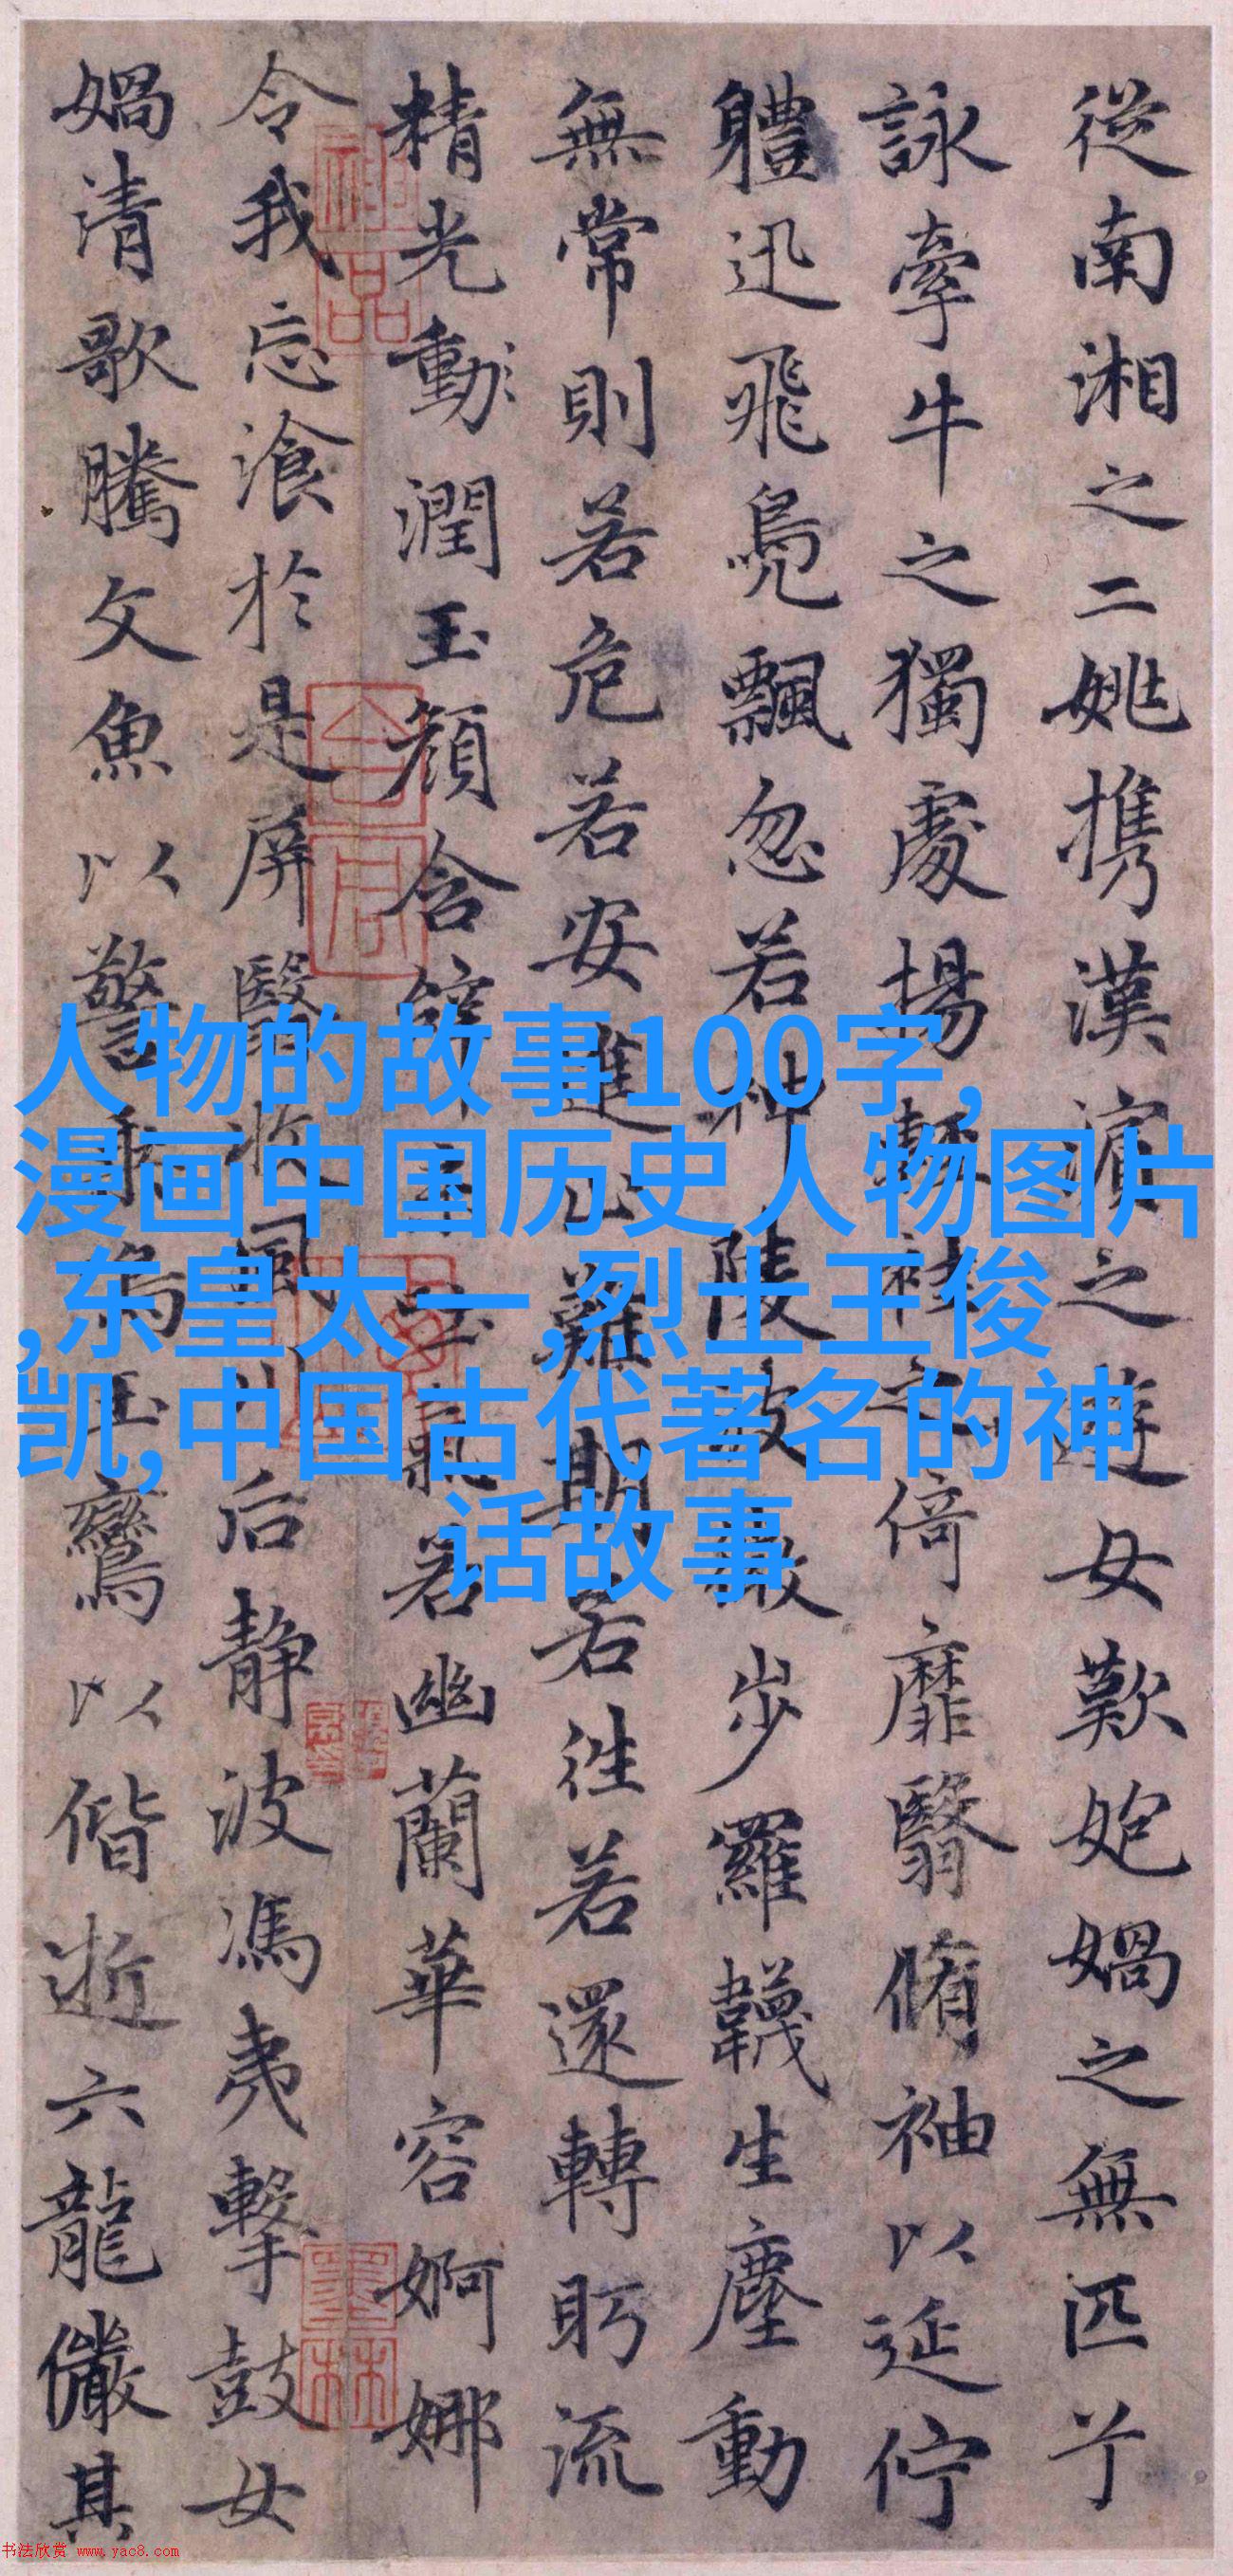 從南湘之二姚携漢濱之遊女歎匏媧之無匹兮
詠牽牛之獨處揚輕袿之倚靡翳脩袖以延佇
體迅飛鳧飄忽若神陵波微步羅韈生塵動
無常則若危若安進止難期若往若還轉眄流
精光動潤玉顏含辭未吐氣若幽蘭華容婀娜
令我忘飡於是屏翳收風川后静波馮夷擊鼓女
媧清歌騰文魚以警乘鳴玉鸞以偕逝六龍儼其
人物的故事100字,
漫画中国历史人物图片
,东皇太一,烈士王俊
凯,中国古代著名的神
话故事
神品
墨林
书法欣赏 www.yac8.com